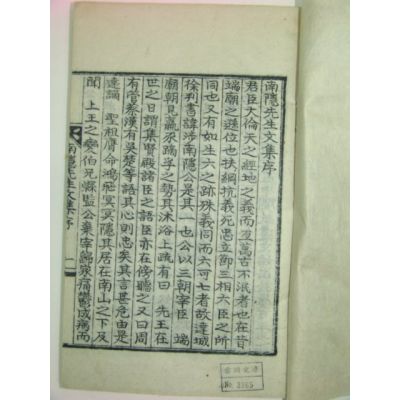 南隱先生文集序
君臣大倫天之經地之義而亙萬古不泯者也在昔
端廟之遜位也扶綱抗義死思立節三相六臣之所
同也又有如生六之跡殊義同而六可七者故達城
徐判書諱涉南隱公是其一也公以三朝宰臣 端
廟朝見嬴豕蹢孚之勢其沐浴上疏有曰 先王在
世之日謂集賢殿諸臣之語臣亦在傍聽之又曰周
有管蔡漢有吳楚等語其心則忠矣其言甚危由是
逢謫 聖祖膺命鴻飛冥冥隱其居在南山之下及
聞 上王之變伯兄縣監公棄宰歸家痛鬱成病而
南隱先生文集序 一
No. 2365